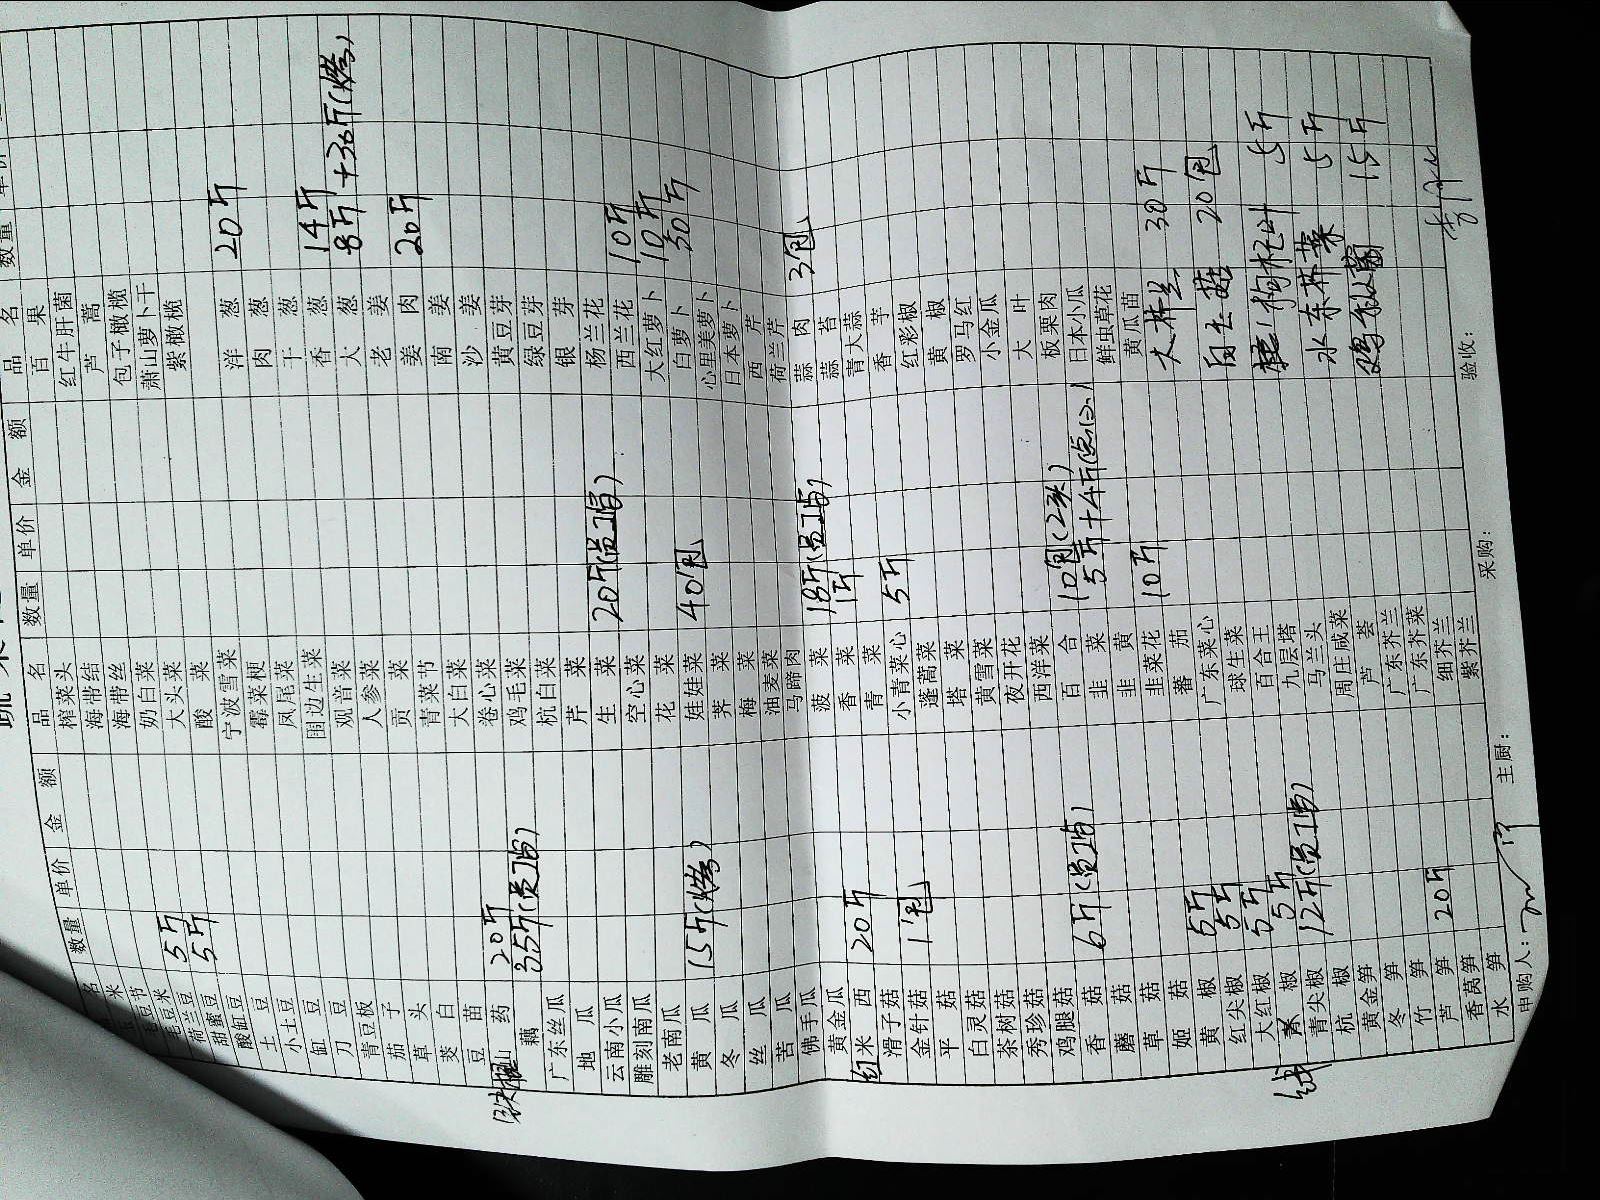 品 名 数量 单价 金 额
毛豆米
荷兰豆 5斤
甜蜜豆 5斤
酸缸豆
土豆
小土豆
缸豆
刀豆
青豆板
茄子
草头
茭白
豆苗
山药 20斤
藕 35斤(员工)
广东丝瓜
地瓜
云南小瓜
雕刻南瓜
老南瓜
黄瓜 15斤(烤)
冬瓜
丝瓜
苦瓜
佛手瓜
黄金瓜
红米西 20斤
滑子菇
金针菇 1包
平菇
白灵菇
茶树菇
秀珍菇
鸡腿菇
香菇 6斤(员工)
蘑菇
草菇
姬菇
黄椒 5斤
红尖椒 5斤
大红椒 5斤
椒 5斤
青尖椒 12斤(员工)
杭椒
黄金笋
冬笋
竹笋
芦笋 20斤
香莴笋
水笋
品 名 数量 单价 金 额
榨菜头
海带结
海带丝
奶白菜
大头菜
酸菜
宁波雪菜
霉菜梗
凤尾菜
围边生菜
观音菜
人参菜
贡菜
青菜节
大白菜
卷心菜
鸡毛菜
杭白菜
芹菜
生菜 20斤(员工)
空心菜
花菜
娃娃菜 40包
荠菜
梅菜
油麦菜
马蹄肉
菠菜 18斤(员工)
香菜 1斤
青菜
小青菜心 5斤
蓬蒿菜
塔菜
黄雪菜
夜开花
西洋菜
百合 10包(2头)
韭菜 5斤+4斤
韭黄
韭菜花 10斤
蕃茄
广东菜心
球生菜
百合王
九层塔
马兰头
周庄咸菜
芦荟
广东芥兰
广东芥菜
细芥兰
紫芥兰
品 名 数量 单价
百果
红牛肝菌
芦蒿
包子橄榄
萧山萝卜干
紫橄榄
洋葱 20斤
肉葱
干葱
香葱 14斤
大葱 8斤+30斤(烤)
老姜
姜肉 20斤
南姜
沙姜
黄豆芽
绿豆芽
银芽
杨兰花
西兰花 10斤
大红萝卜 10斤
白萝卜 30斤
心里美萝卜
日本萝卜
西芹
荷兰芹
蒜肉 3包
蒜苔
青大蒜
香芋
红彩椒
黄椒
罗马红
小金瓜
大叶
板栗肉
日本小瓜
鲜虫草花
黄瓜苗
30斤
菇 20包
枸杞叶 5斤
水东芥菜 5斤
15斤
申购人: 主厨: 采购: 验收: